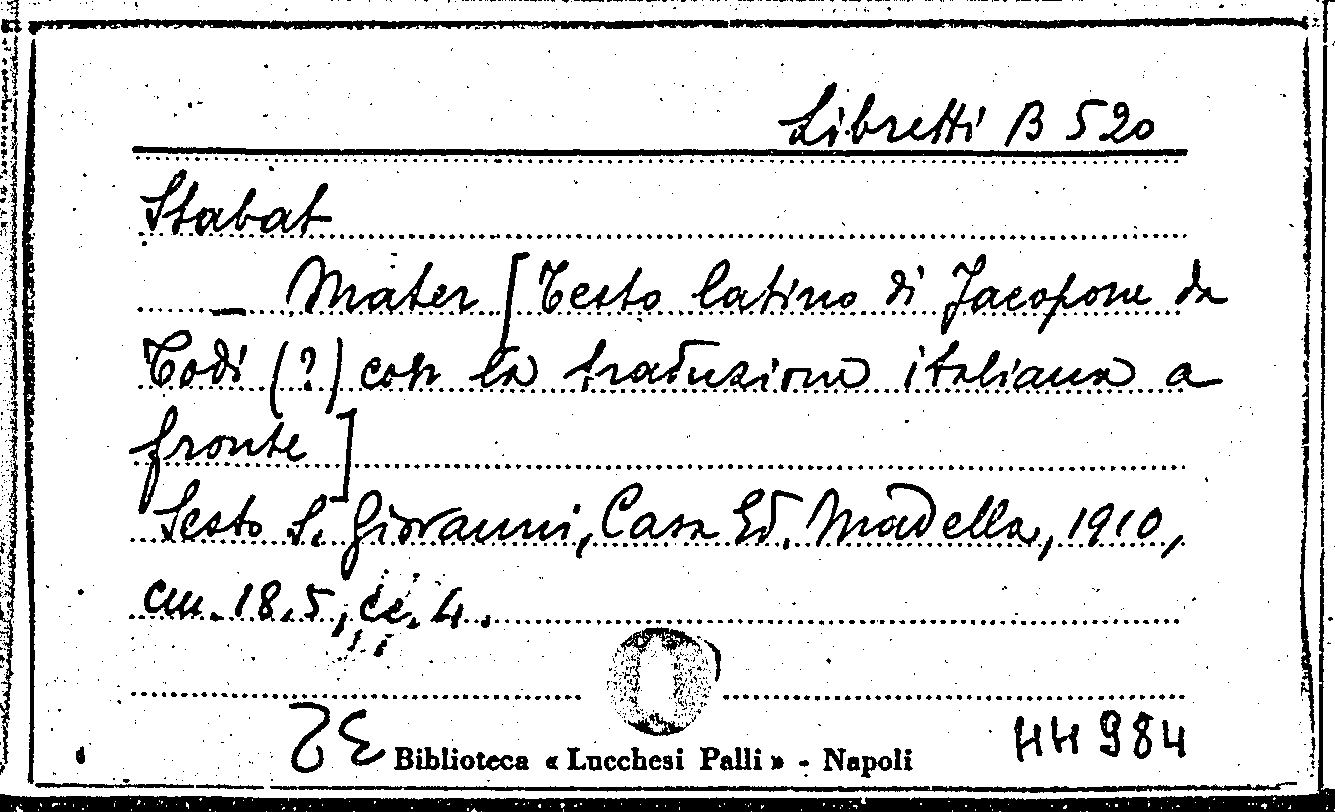 Libretti B 520
Stabat
— Mater [Testo latino di Jacopone da
Todi (?) con la traduzione italiana a
fronte]
Sesto S. Giovanni, Casa Ed. Madella, 1910,
cm. 18.5, cc. 4.
Biblioteca « Lucchesi Palli » - Napoli
HH 984